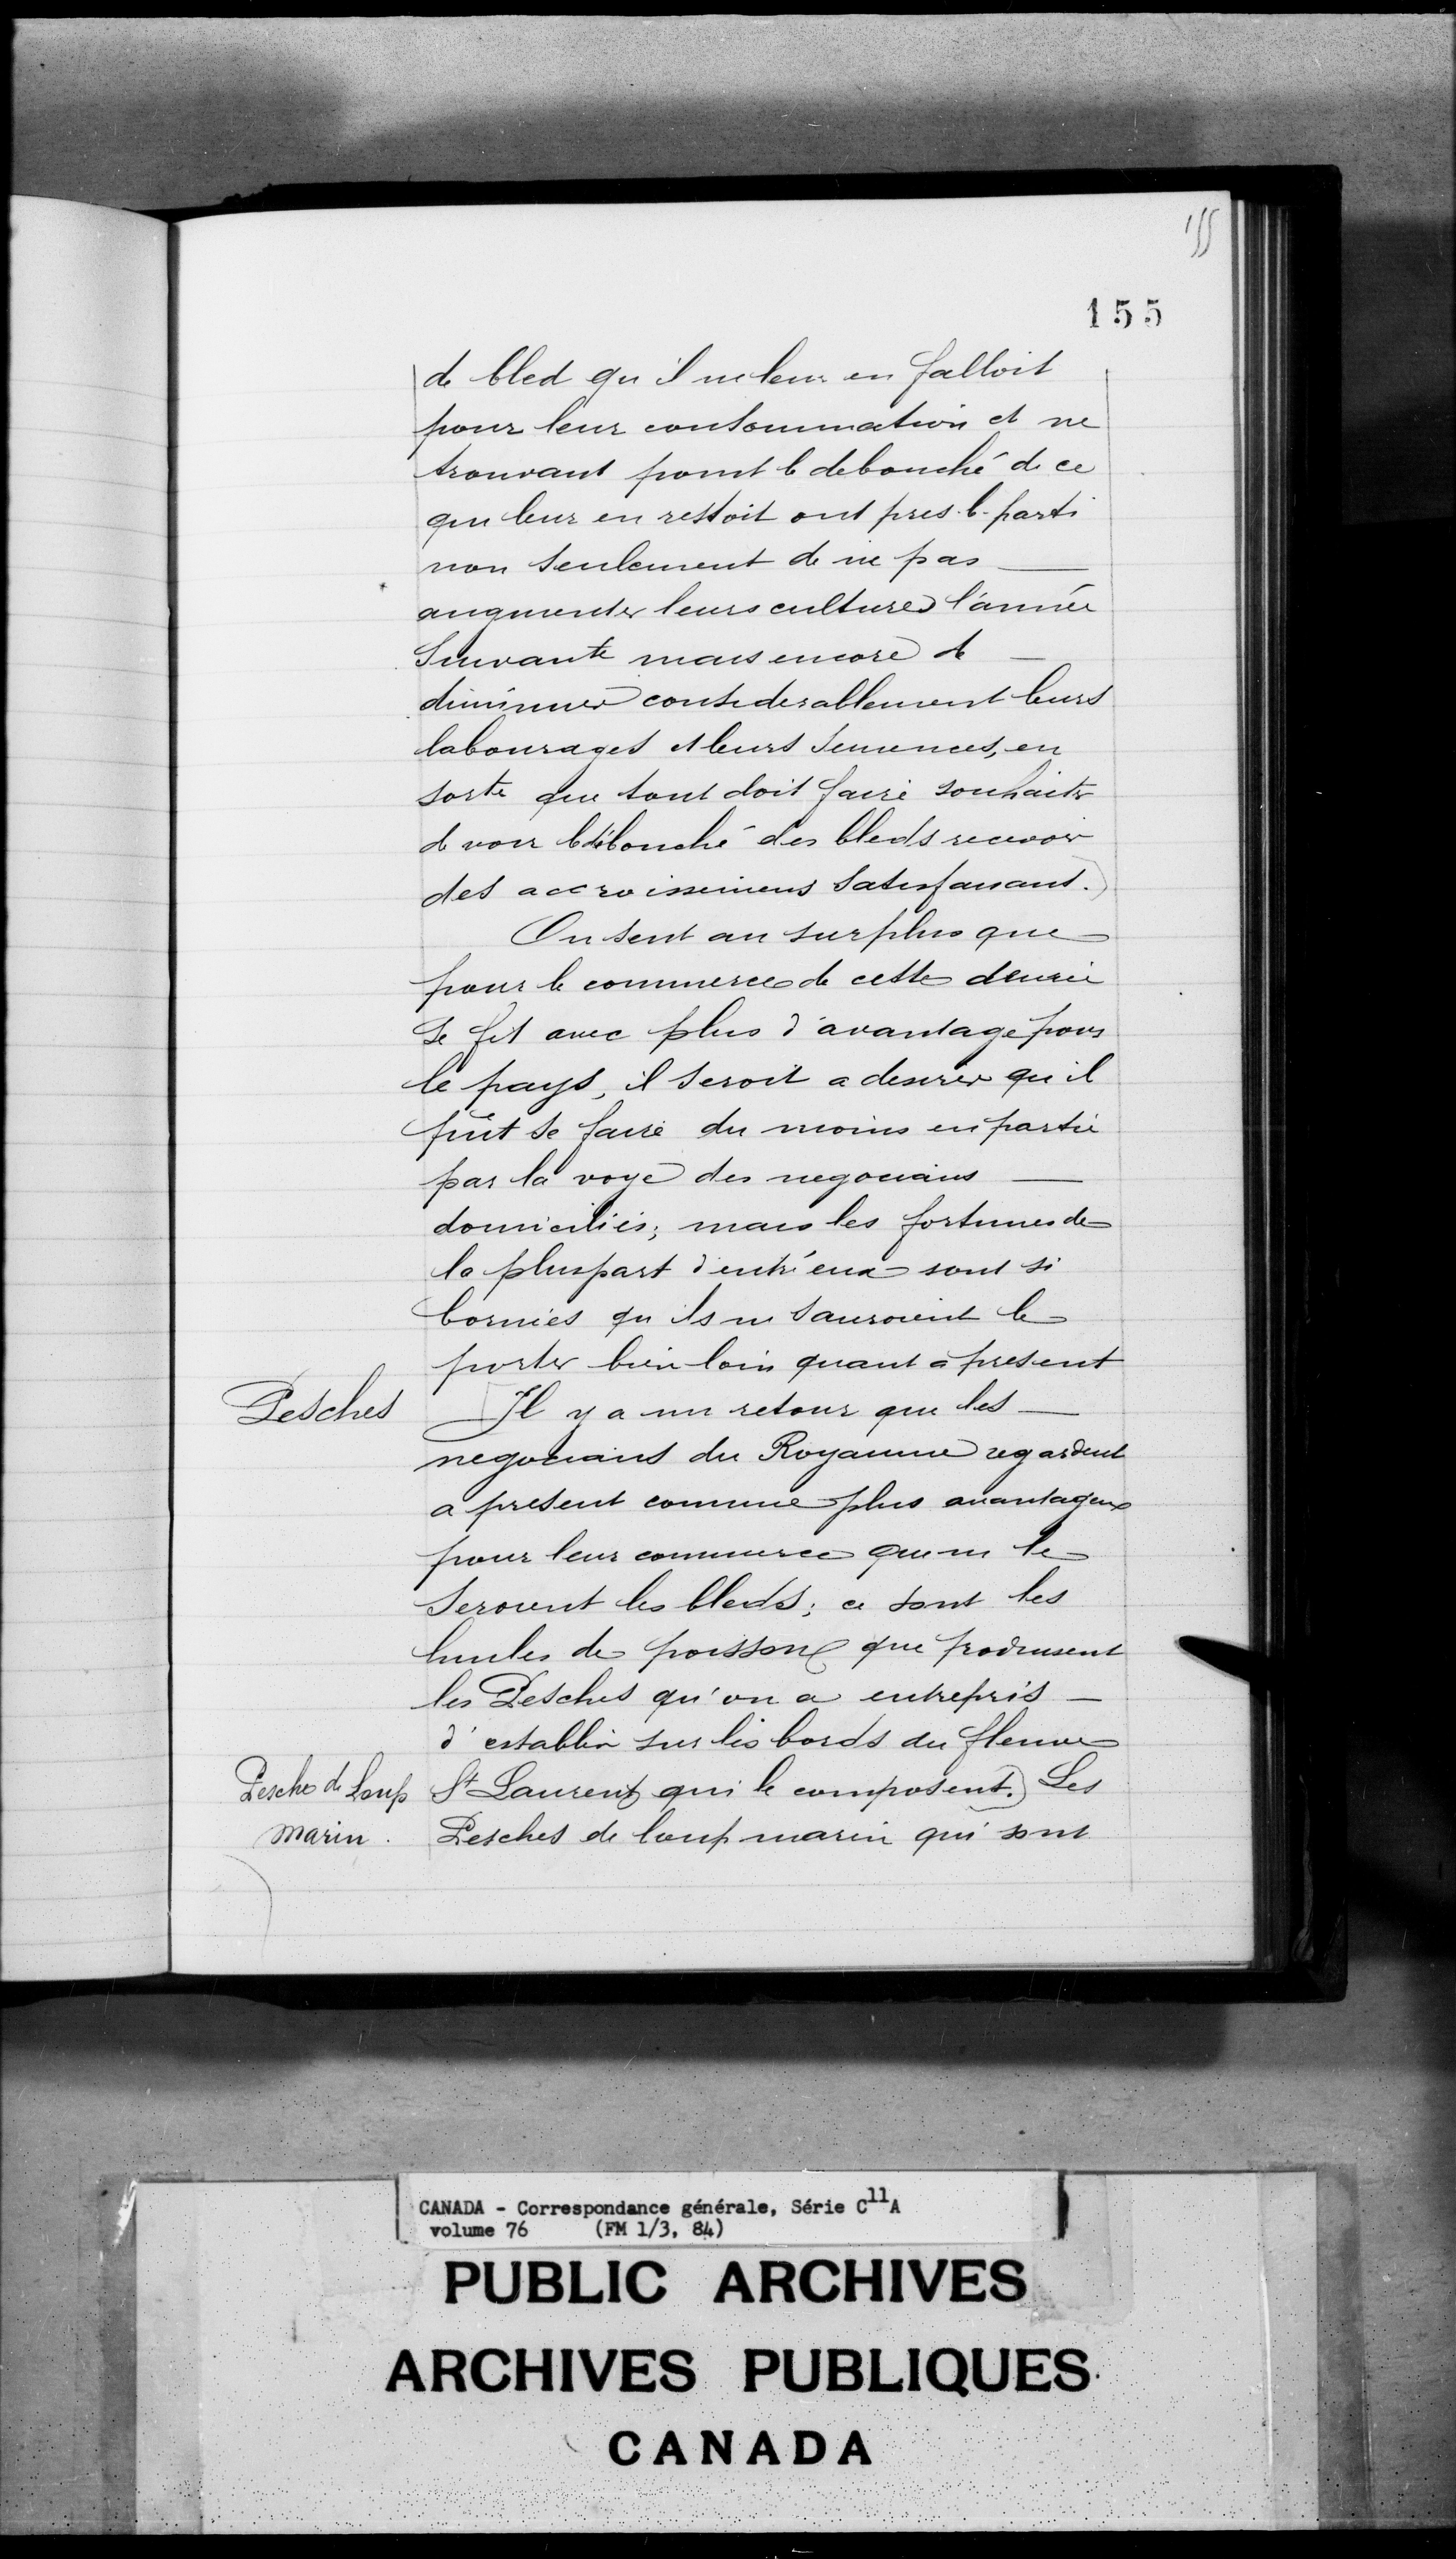 155
155
de bled qu'il ne leur en falloit
pour leur consommation et ne
trouvant point le debouché de ce
qui leur en restoit ont pris le parti
non seulement de ne pas —
augmenter leurs cultures l'année
suivante mais encore de —
diminuer considerablement leurs
labourages et leurs semences, en
sorte que tout doit faire souhaiter
de voir le débouché des bleds recevoir
des accroissemens satisfaisant.)
On sent au surplus que
pour le commerce de cette denrée
se fit avec plus d'avantage pour
le pays, il seroit a desirer qu'il
pût se faire du moins en partie
par la voye des negocians —
domiciliés; mais les fortunes de
la pluspart d'entr'eux sont si
bornées qu'ils ne sauroient le
porter bien loin quant à present
Pesches [Il y a un retour que les —
negocians du Royaume regardent
a present comme plus avantageux
pour leur commerce que ne le
seroient les bleds; ce sont les
huiles de poisson que produisent
les Pesches qu'on a entrepris —
d'establir sur les bords du fleuve
Pesche de Loup St Laurent qui le composent.) Les
marin. Pesches de loup marin qui sont
CANADA - Correspondance générale, Série C11A
volume 76 (FM 1/3, 84)
PUBLIC ARCHIVES
ARCHIVES PUBLIQUES
CANADA